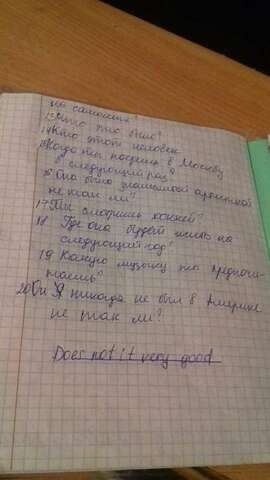 на самолёте?
13 Что это было?
14 Кто этот человек
15 Когда ты поедешь в Москву
в следующий раз?
16 Она была знаменитой артисткой
не так ли?
17 Ты смотришь хоккей?
18 Где она будет жить на
следующий год?
19 Какую музыку ты предпочи-
таешь?
20 Он Я никогда не был в Америке
не так ли?
Does not it very good